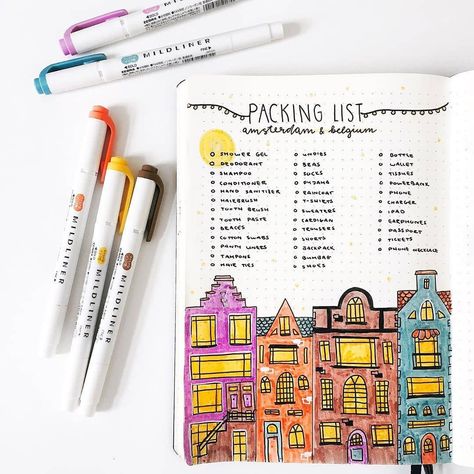 MILDLINER
ZEBRA
MILDLINER
FINE
PACKING LIST
amsterdam & belgium
SHOWER GEL
DEODORANT
SHAMPOO
CONDITIONER
HAND SANITIZER
HAIRBRUSH
TOOTH BRUSH
TOOTH PASTE
BRACES
COTTON SWABS
PANTY LINERS
TAMPONS
HAIR TIES
UNDIES
BRAS
SOCKS
PYJAMA
RAINCOAT
T-SHIRTS
SWEATERS
CARDIGAN
TROUSERS
SHORTS
BACKPACK
BUMBAG
SHOES
BOTTLE
WALLET
TISSUES
POWERBANK
PHONE
CHARGER
IPAD
EARPHONES
PASSPORT
TICKETS
PHONE NECKLACE
MILDLINER
MILDLINER
MILDLINER